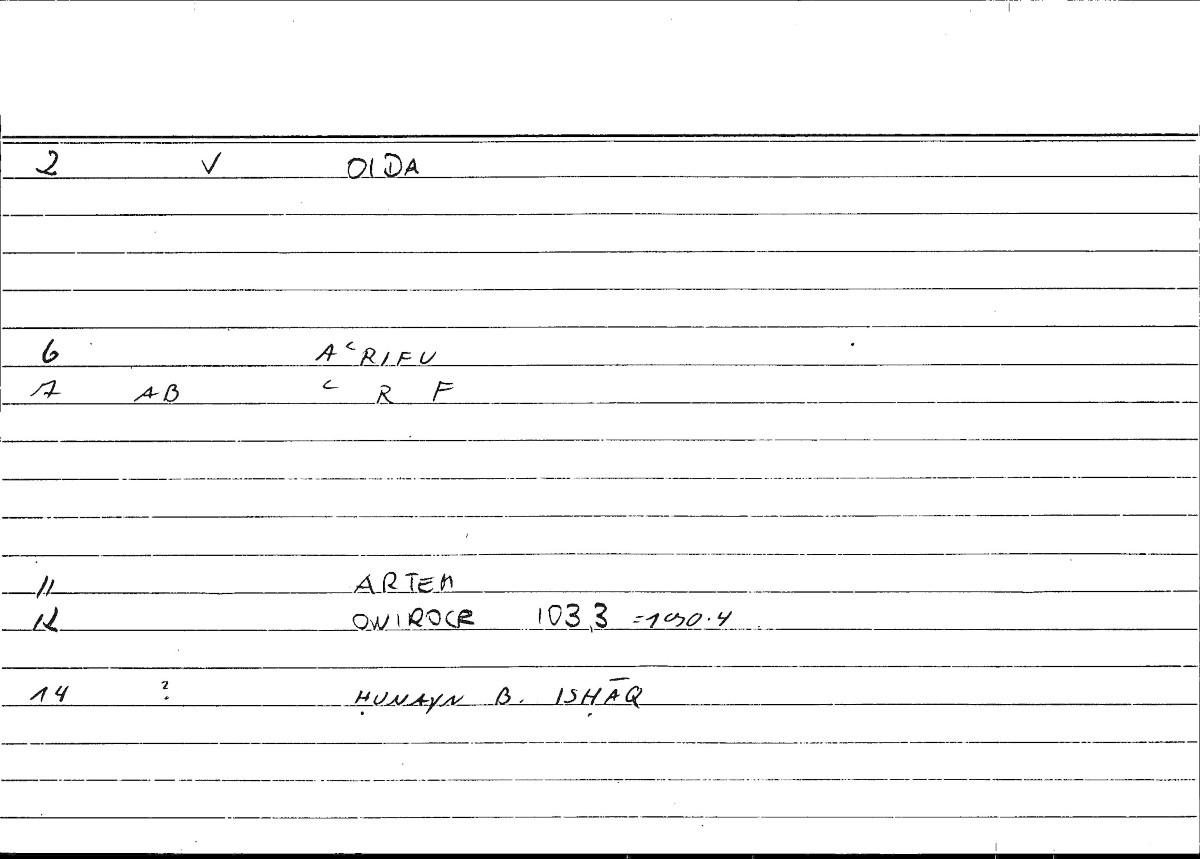 2 V OIDA
6 AʿRIFU
7 AB ʿ R F
11 ARTEM
12 ONIROCR 103,3 =190.4
14 ? ḤUNAYN B. ISḤĀQ